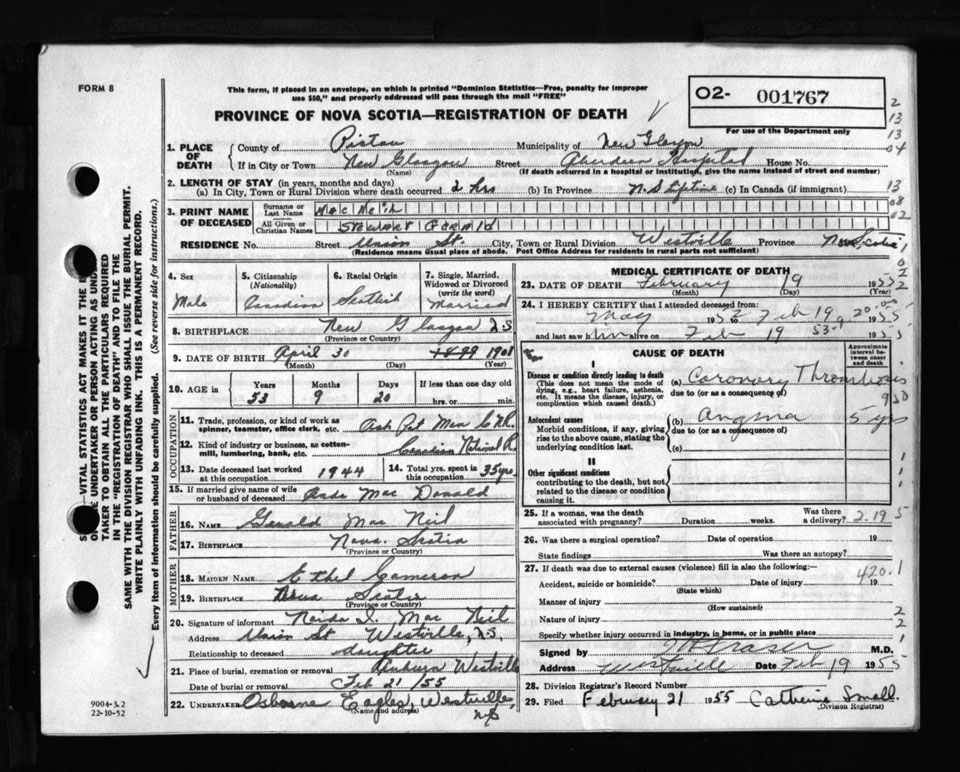 FORM 8
This form, if placed in an envelope, on which is printed "Dominion Statistics—Free, penalty for improper
use $50," and properly addressed will pass through the mail "FREE"
O2- 001767
For use of the Department only
PROVINCE OF NOVA SCOTIA—REGISTRATION OF DEATH
2
13
13
04
13
08
02
1
0
2
2
1. PLACE OF DEATH
County of Pictou Municipality of New Glasgow
If in City or Town New Glasgow Street Aberdeen Hospital House No.
(Name) (If death occurred in a hospital or institution, give the name instead of street and number)
2. LENGTH OF STAY (in years, months and days)
(a) In City, Town or Rural Division where death occurred 2 hrs (b) In Province N.S Lifetime (c) In Canada (if immigrant)
3. PRINT NAME OF DECEASED
Surname or Last Name MacNeil
All Given or Christian Names Stewart Gerald
RESIDENCE No. Street Union St. City, Town or Rural Division Westville Province Nova Scotia
(Residence means usual place of abode. Post Office Address for residents in rural parts not sufficient)
4. Sex
Male
5. Citizenship
(Nationality)
Canadian
6. Racial Origin
Scottish
7. Single, Married, Widowed or Divorced
(write the word)
Married
8. BIRTHPLACE New Glasgow N.S
(Province or Country)
9. DATE OF BIRTH April 30 1899 1901
(Month) (Day) (Year)
10. AGE in
Years Months Days If less than one day old
53 9 20 hrs. or min.
OCCUPATION
11. Trade, profession, or kind of work as spinner, teamster, office clerk, etc. Man C.N.R.
12. Kind of industry or business, as cotton-mill, lumbering, bank, etc. Canadian National R.
13. Date deceased last worked at this occupation 1944
14. Total yrs. spent in this occupation 35 yrs.
15. If married give name of wife or husband of deceased Mac Donald
FATHER
16. NAME Gerald Mac Neil
17. BIRTHPLACE Nova Scotia
(Province or Country)
MOTHER
18. MAIDEN NAME Ethel Cameron
19. BIRTHPLACE Nova Scotia
(Province or Country)
20. Signature of informant Mac Neil
Address Union St Westville, N.S.
Relationship to deceased daughter
21. Place of burial, cremation or removal Auburn Westville
Date of burial or removal Feb 21/55
22. UNDERTAKER Osborne Eagles, Westville,
(Name and address)
N.S
MEDICAL CERTIFICATE OF DEATH
23. DATE OF DEATH February 19 1955
(Month) (Day) (Year)
24. I HEREBY CERTIFY that I attended deceased from:
May 1952 Feb 19 1955
and last saw him alive on Feb 19 1955
CAUSE OF DEATH
Approximate interval between onset and death
I
Disease or condition directly leading to death
(This does not mean the mode of dying, e.g., heart failure, asthenia, etc. It means the disease, injury, or complication which caused death.)
(a) Coronary Thrombosis
due to (or as a consequence of)
Antecedent causes
Morbid conditions, if any, giving rise to the above cause, stating the underlying condition last.
(b) Angina 5 yrs
due to (or as a consequence of)
(c)
II
Other significant conditions
contributing to the death, but not related to the disease or condition causing it.
25. If a woman, was the death associated with pregnancy? Duration weeks. Was there a delivery?
2.19 5
26. Was there a surgical operation? Date of operation 19
State findings Was there an autopsy?
27. If death was due to external causes (violence) fill in also the following:—
420.1
Accident, suicide or homicide? Date of injury 19
(State which)
Manner of injury
(How sustained)
Nature of injury
Specify whether injury occurred in industry, in home, or in public place
Signed by Fraser M.D.
Address Westville Date Feb 19 1955
28. Division Registrar's Record Number
29. Filed February 21 1955 Catherine Small.
(Division Registrar)
VITAL STATISTICS ACT MAKES IT THE
UNDERTAKER OR PERSON ACTING AS
TAKER TO OBTAIN ALL THE PARTICULARS REQUIRED
IN THE "REGISTRATION OF DEATH" AND TO FILE THE
SAME WITH THE DIVISION REGISTRAR WHO SHALL ISSUE THE BURIAL PERMIT.
WRITE PLAINLY WITH UNFADING INK. THIS IS A PERMANENT RECORD.
Every item of information should be carefully supplied. (See reverse side for instructions.)
9004-3.2
22-10-52